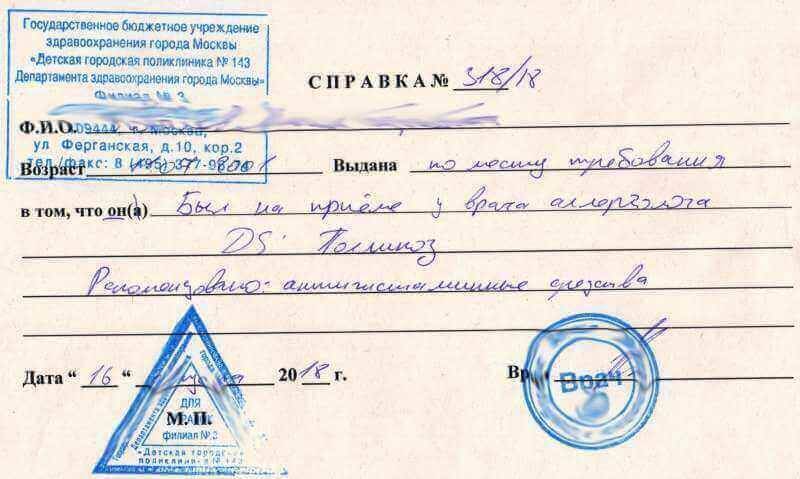 Государственное бюджетное учреждение
здравоохранения города Москвы
«Детская городская поликлиника № 143
Департамента здравоохранения города Москвы»
Филиал № 3
СПРАВКА № 318/18
Ф.И.О.
109444, г. Москва,
ул. Ферганская, д.10, кор.2
тел./факс: 8 (495) 377-
Возраст
Выдана по месту требования
в том, что он(а) Был на приёме у врача аллерголога
DS: Поллиноз
Рекомендовано: антигистаминные средства
Дата “ 16 “ 2018 г.
Вр
Врач
ДЛЯ
М.П.
филиал №3
«Детская городск
поликлиника № 143